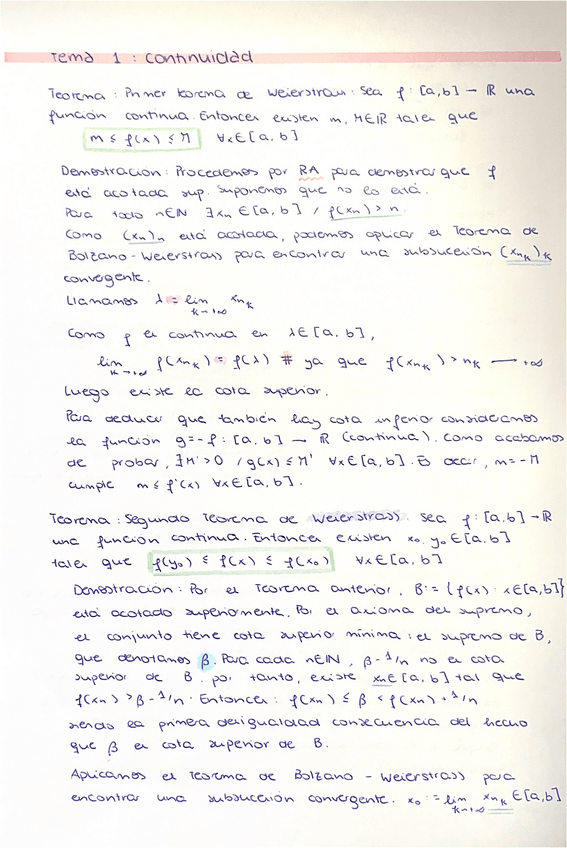 Tema 1 : Continuidad
Teorema : Primer teorema de Weierstrass : Sea f : [a,b] → ℝ una
función continua. Entonces existen m, M∈ℝ tales que
m ≤ f(x) ≤ M ∀x∈[a,b]
Demostración : Procedemos por RA para demostrar que f
está acotada sup. Suponemos que no lo está.
Para todo n∈ℕ ∃xn ∈[a,b] / f(xn) > n.
Como (xn)n está acotada, podemos aplicar el Teorema de
Bolzano - Weierstrass para encontrar una subsucesión (xnk)k
convergente.
Llamamos λ = lim k→+∞ xnk
Como f es continua en λ∈[a,b],
lim k→+∞ f(xnk) = f(λ) # ya que f(xnk) > nk → +∞
Luego existe la cota superior.
Para deducir que también hay cota inferior consideramos
la función g=-f : [a,b] → ℝ (continua). Como acabamos
de probar, ∃M'>0 / g(x) ≤ M' ∀x∈[a,b]. Es decir, m=-M
cumple m ≤ f(x) ∀x∈[a,b].
Teorema : Segundo Teorema de Weierstrass. Sea f : [a,b] → ℝ
una función continua. Entonces existen x₀, y₀∈[a,b]
tales que f(y₀) ≤ f(x) ≤ f(x₀) ∀x∈[a,b]
Demostración : Por el Teorema anterior, B := {f(x) : x∈[a,b]}
está acotado superiormente. Por el axioma del supremo,
el conjunto tiene cota superior mínima : el supremo de B,
que denotamos β. Para cada n∈ℕ, β - 1/n no es cota
superior de B. por tanto, existe xn∈[a,b] tal que
f(xn) > β - 1/n. Entonces : f(xn) ≤ β < f(xn) + 1/n
siendo la primera desigualdad consecuencia del hecho
que β es cota superior de B.
Aplicamos el Teorema de Bolzano - Weierstrass para
encontrar una subsucesión convergente. x₀ := lim k→+∞ xnk ∈[a,b]